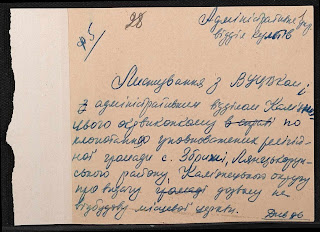 28
ф 5/
Адміністративний
відділ культів
Листування з ВУЦВКом і
з адміністративним відділом Камінець-
цького окрвиконкому в справі по
клопотанню уповноважених релігій-
ної громади с. Збрижі, Лянцкорун-
ського району, Кам'янецького округу
про видачу громаді дозволу на
відбудову місцевої церкви.